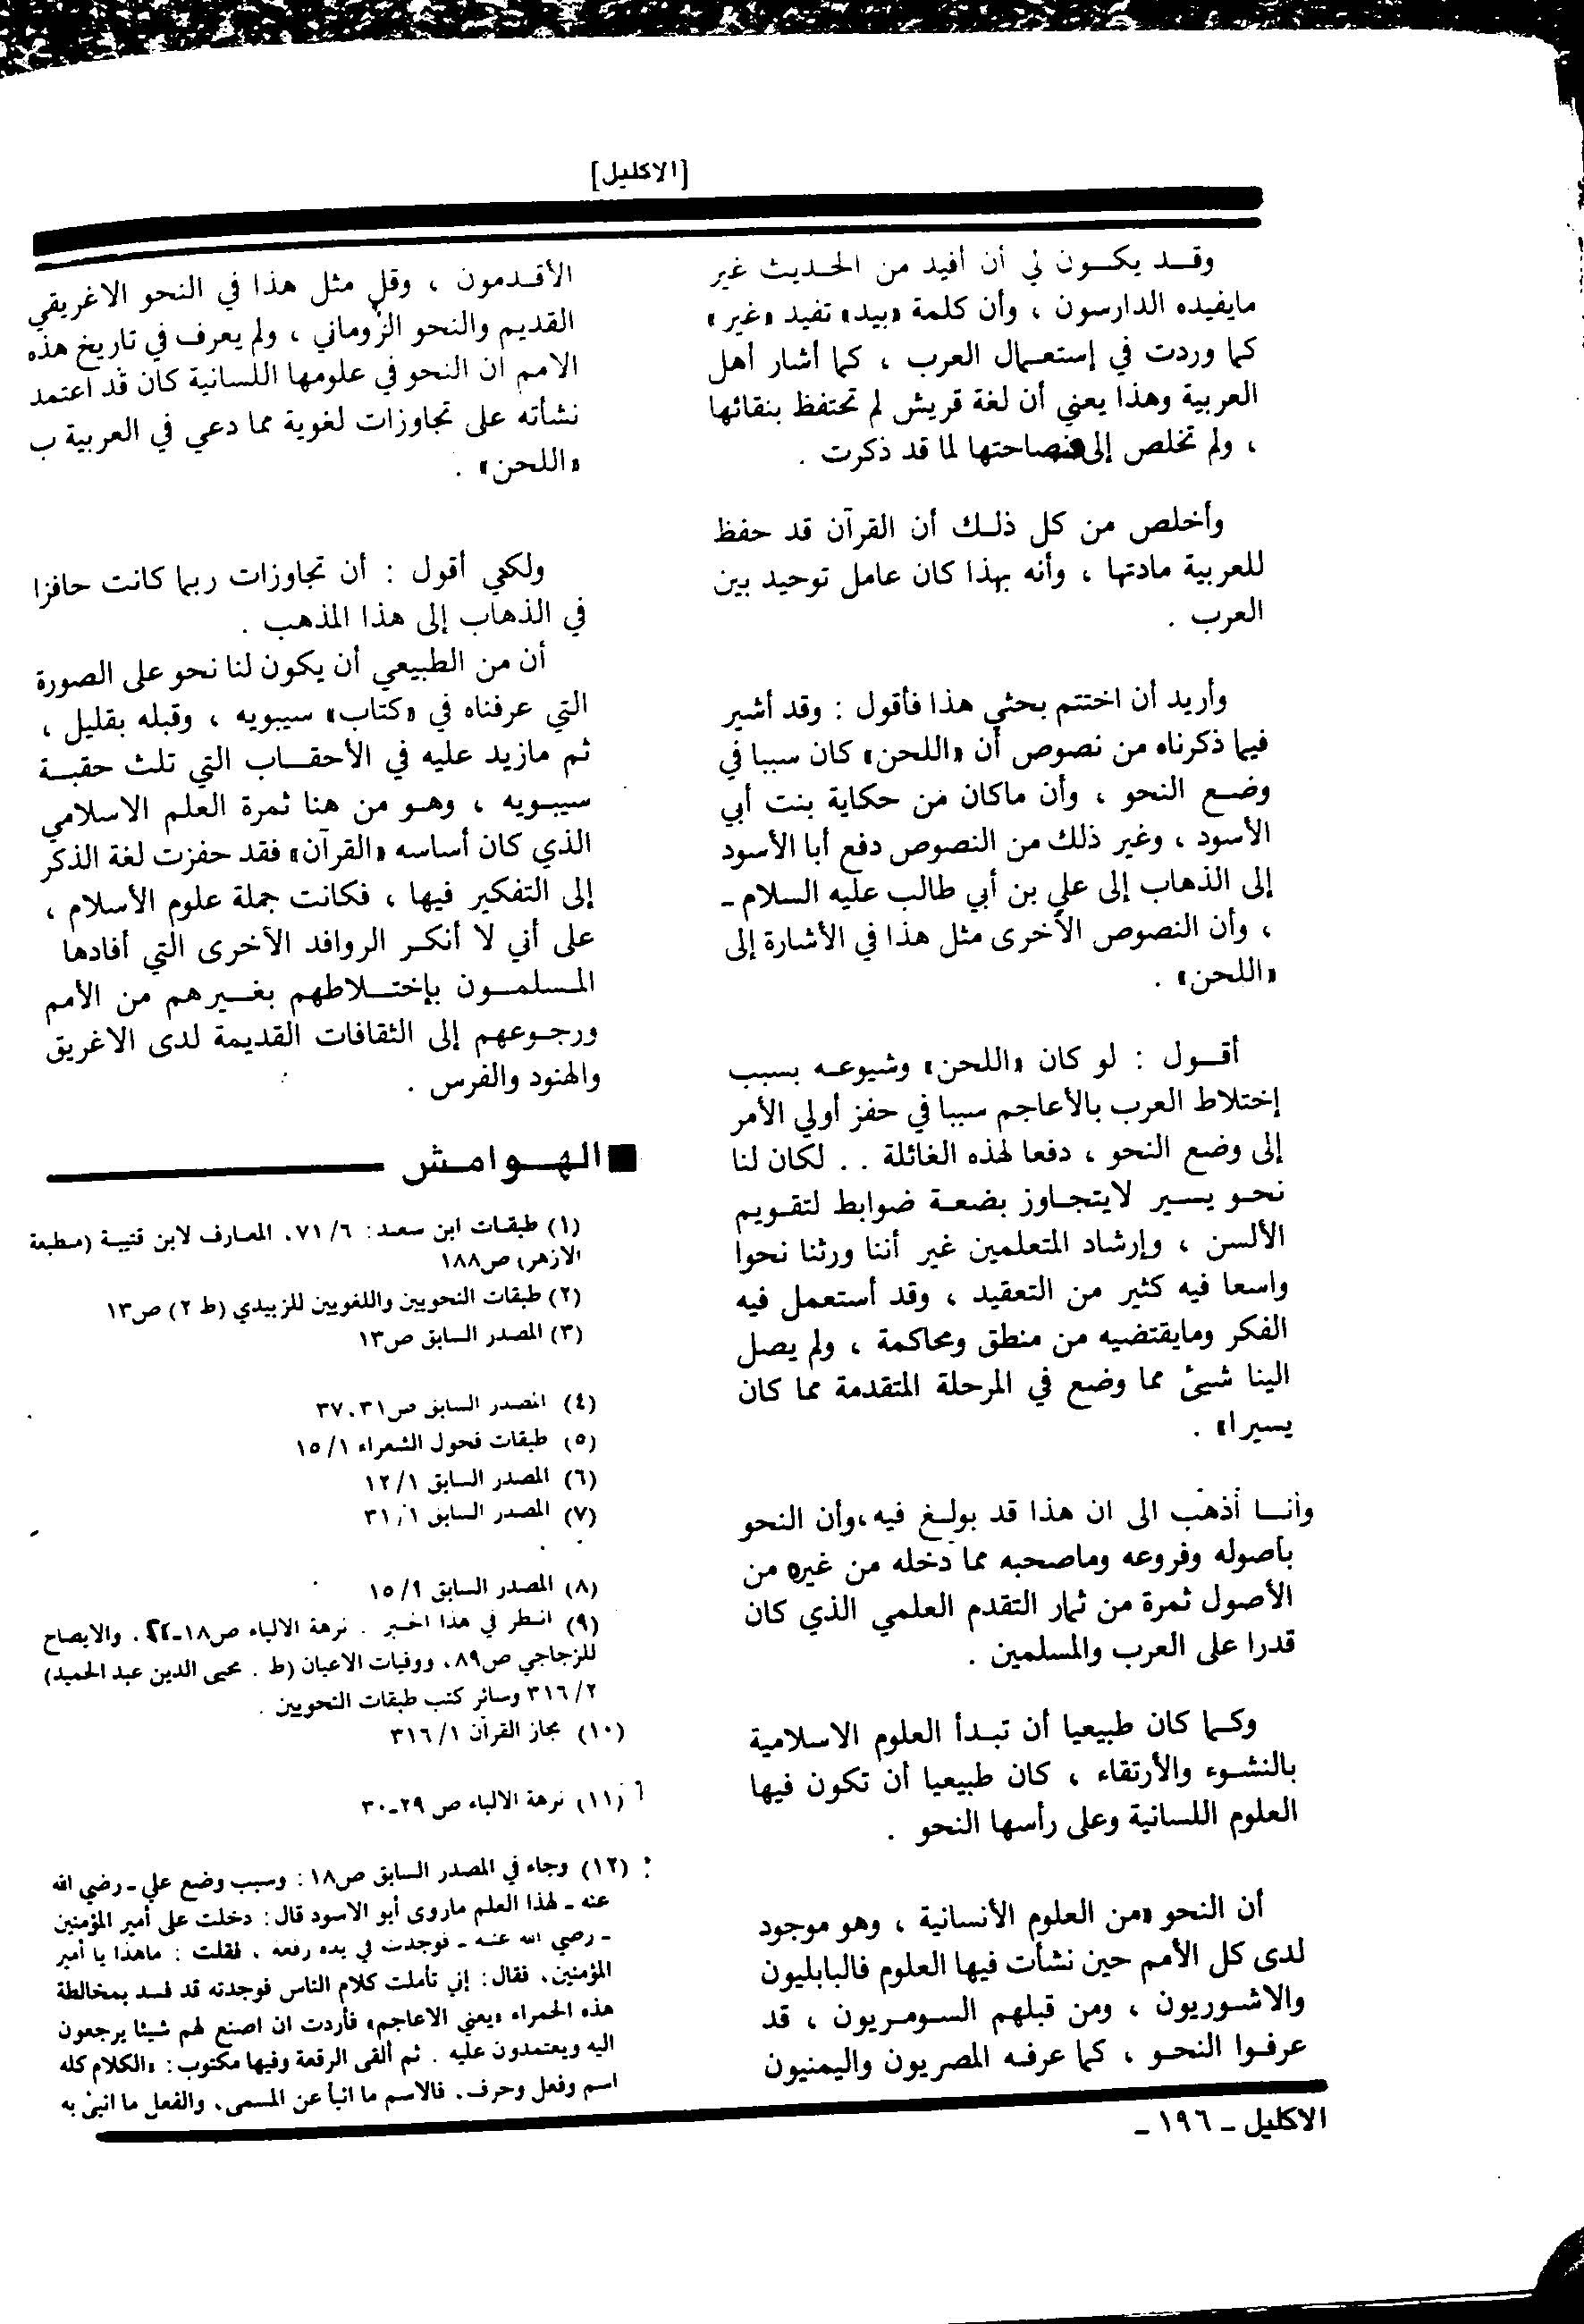 [الاكليل]
وقد يكون لي أن أفيد من الحديث غير
مايفيده الدارسون ، وأن كلمة «بيد» تفيد «غير»
كما وردت في إستعمال العرب ، كما أشار أهل
العربية وهذا يعني أن لغة قريش لم تحتفظ بنقائها
، ولم تخلص إلى فصاحتها لما قد ذكرت .
وأخلص من كل ذلك أن القرآن قد حفظ
للعربية مادتها ، وأنه بهذا كان عامل توحيد بين
العرب .
وأريد أن اختتم بحثي هذا فأقول : وقد أشير
فيما ذكرناه من نصوص أن «اللحن» كان سببا في
وضع النحو ، وأن ماكان من حكاية بنت أبي
الأسود ، وغير ذلك من النصوص دفع أبا الأسود
إلى الذهاب إلى علي بن أبي طالب عليه السلام -
، وأن النصوص الأخرى مثل هذا في الأشارة إلى
«اللحن» .
أقول : لو كان «اللحن» وشيوعه بسبب
إختلاط العرب بالأعاجم سببا في حفز أولي الأمر
إلى وضع النحو ، دفعا لهذه الغائلة . . لكان لنا
نحو يسير لايتجاوز بضعة ضوابط لتقويم
الألسن ، وإرشاد المتعلمين غير أننا ورثنا نحوا
واسعا فيه كثير من التعقيد ، وقد أستعمل فيه
الفكر ومايقتضيه من منطق ومحاكمة ، ولم يصل
الينا شيئ مما وضع في المرحلة المتقدمة مما كان
يسيرا» .
وأنا أذهب الى ان هذا قد بولغ فيه،وأن النحو
بأصوله وفروعه وماصحبه مما دخله من غيره من
الأصول ثمرة من ثمار التقدم العلمي الذي كان
قدرا على العرب والمسلمين .
وكما كان طبيعيا أن تبدأ العلوم الاسلامية
بالنشوء والأرتقاء ، كان طبيعيا أن تكون فيها
العلوم اللسانية وعلى رأسها النحو .
أن النحو «من العلوم الأنسانية ، وهو موجود
لدى كل الأمم حين نشأت فيها العلوم فالبابليون
والاشوريون ، ومن قبلهم السومريون ، قد
عرفوا النحو ، كما عرفه المصريون واليمنيون
الأقدمون ، وقل مثل هذا في النحو الاغريقي
القديم والنحو الروماني ، ولم يعرف في تاريخ هذه
الامم ان النحو في علومها اللسانية كان قد اعتمد
نشأته على تجاوزات لغوية مما دعي في العربية ب
«اللحن» .
ولكني أقول : أن تجاوزات ربما كانت حافزا
في الذهاب إلى هذا المذهب .
أن من الطبيعي أن يكون لنا نحو على الصورة
التي عرفناه في «كتاب» سيبويه ، وقبله بقليل ،
ثم مازيد عليه في الأحقاب التي تلث حقبة
سيبويه ، وهو من هنا ثمرة العلم الاسلامي
الذي كان أساسه «القرآن» فقد حفزت لغة الذكر
إلى التفكير فيها ، فكانت جملة علوم الأسلام ،
على أني لا أنكر الروافد الأخرى التي أفادها
المسلمون بإختلاطهم بغيرهم من الأمم
ورجوعهم إلى الثقافات القديمة لدى الاغريق
والهنود والفرس .
■ الهوامش
(١) طبقات ابن سعد: ٦/ ٧١. المعارف لابن قتيبة (مطبعة
الازهر) ص١٨٨
(٢) طبقات النحويين واللغويين للزبيدي (ط ٢) ص١٣
(٣) المصدر السابق ص١٣
(٤) المصدر السابق ص٣١، ٣٧
(٥) طبقات فحول الشعراء ١/ ١٥
(٦) المصدر السابق ١/ ١٢
(٧) المصدر السابق ١/ ٣١
(٨) المصدر السابق ١/ ١٥
(٩) انظر في هذا الخبر . نزهة الالباء ص١٨-٢٢. والايضاح
للزجاجي ص٨٩. ووفيات الاعيان (ط . محيى الدين عبد الحميد)
٢/ ٣١٦ وسائر كتب طبقات النحويين .
(١٠) مجاز القرآن ١/ ٣١٦
(١١) نزهة الالباء ص ٢٩-٣٠
(١٢) وجاء في المصدر السابق ص١٨: وسبب وضع علي - رضي الله
عنه - لهذا العلم ماروى أبو الاسود قال: دخلت على أمير المؤمنين
- رضي الله عنه - فوجدت في يده رقعة . فقلت : ماهذا يا أمير
المؤمنين. فقال: إني تأملت كلام الناس فوجدته قد فسد بمخالطة
هذه الحمراء «يعني الاعاجم» فأردت ان اصنع لهم شيئا يرجعون
اليه ويعتمدون عليه . ثم ألقى الرقعة وفيها مكتوب: «الكلام كله
اسم وفعل وحرف. فالاسم ما انبأ عن المسمى. والفعل ما انبئ به
الاكليل - ١٩٦ -